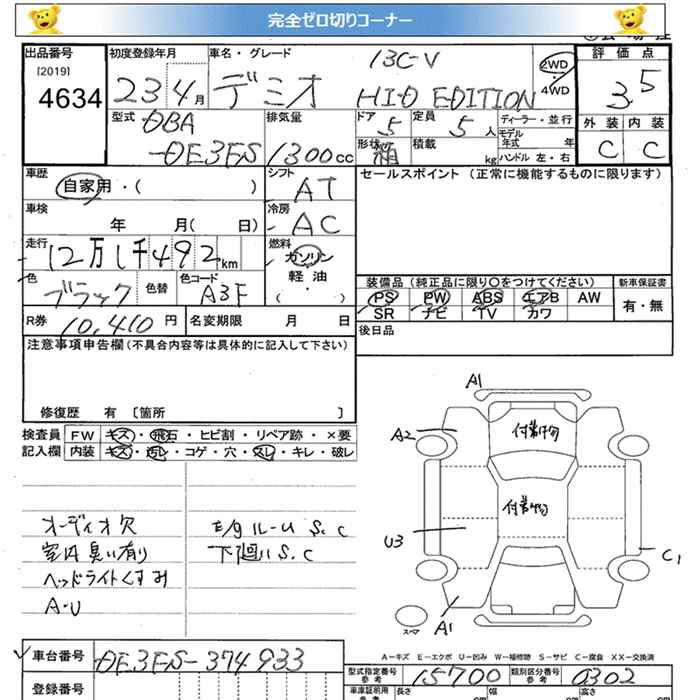 完全ゼロ切りコーナー
出品番号 [2019] 4634
初度登録年月 23 4月
車名・グレード デミオ 13C-V HID EDITION
2WD 4WD
評価点 3.5
外装 内装
C C
型式 DBA -DE3FS
排気量 1300cc
ドア 5 定員 5人
形状 箱 積載 kg
ディーラー・並行
モデル年式 年
ハンドル 左・右
車歴 自家用・( )
シフト AT
セールスポイント(正常に機能するものに限ります)
車検 年 月( 日)
冷房 AC
走行 12万1千492km
燃料 ガソリン 軽油 ( ・ )
色 ブラック 色替 色コード A3F
装備品(純正品に限り〇をつけてください) 新車保証書
PS PW ABS エアB AW 有・無
SR ナビ TV カワ
R券 10,410円 名変期限 月 日
後日品
注意事項申告欄(不具合内容等は具体的に記入して下さい)
修復歴 有 〔箇所 〕
検査員 FW キズ・飛石・ヒビ割・リペア跡・×要
記入欄 内装 キズ・汚レ・コゲ・穴・スレ・キレ・破レ
オーディオ欠
室内臭い有り
ヘッドライトくすみ
A・U
E/gルームS.C
下廻りS.C
A1
A2
付着物
付着物
U3
C1
A1
スペア
A-キズ E-エクボ U-凹み W-補修跡 S-サビ C-腐食 XX-交換済
車台番号 DE3FS-374933
登録番号
型式指定番号 参考 15700 類別区分番号 参考 0302
車庫証明用 参考 長さ 幅 高さ